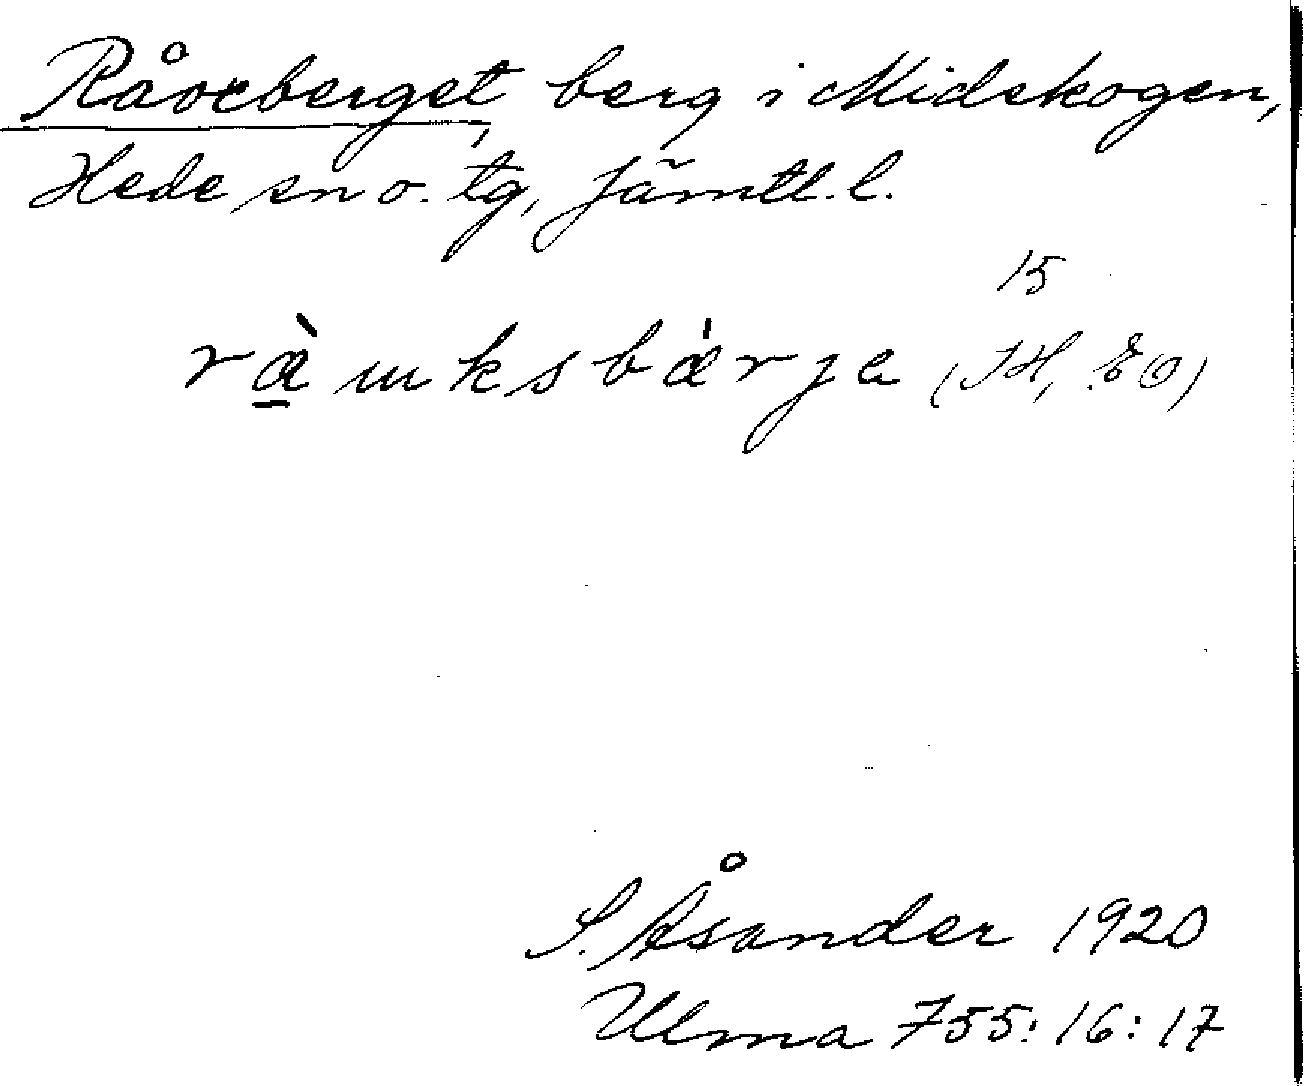 Råveberget, berg i Midskogen,
Hede sn o. tg, Jämtl. l.
15
(JH, EO)
S. Åsander 1920
Ulma 755:16:17